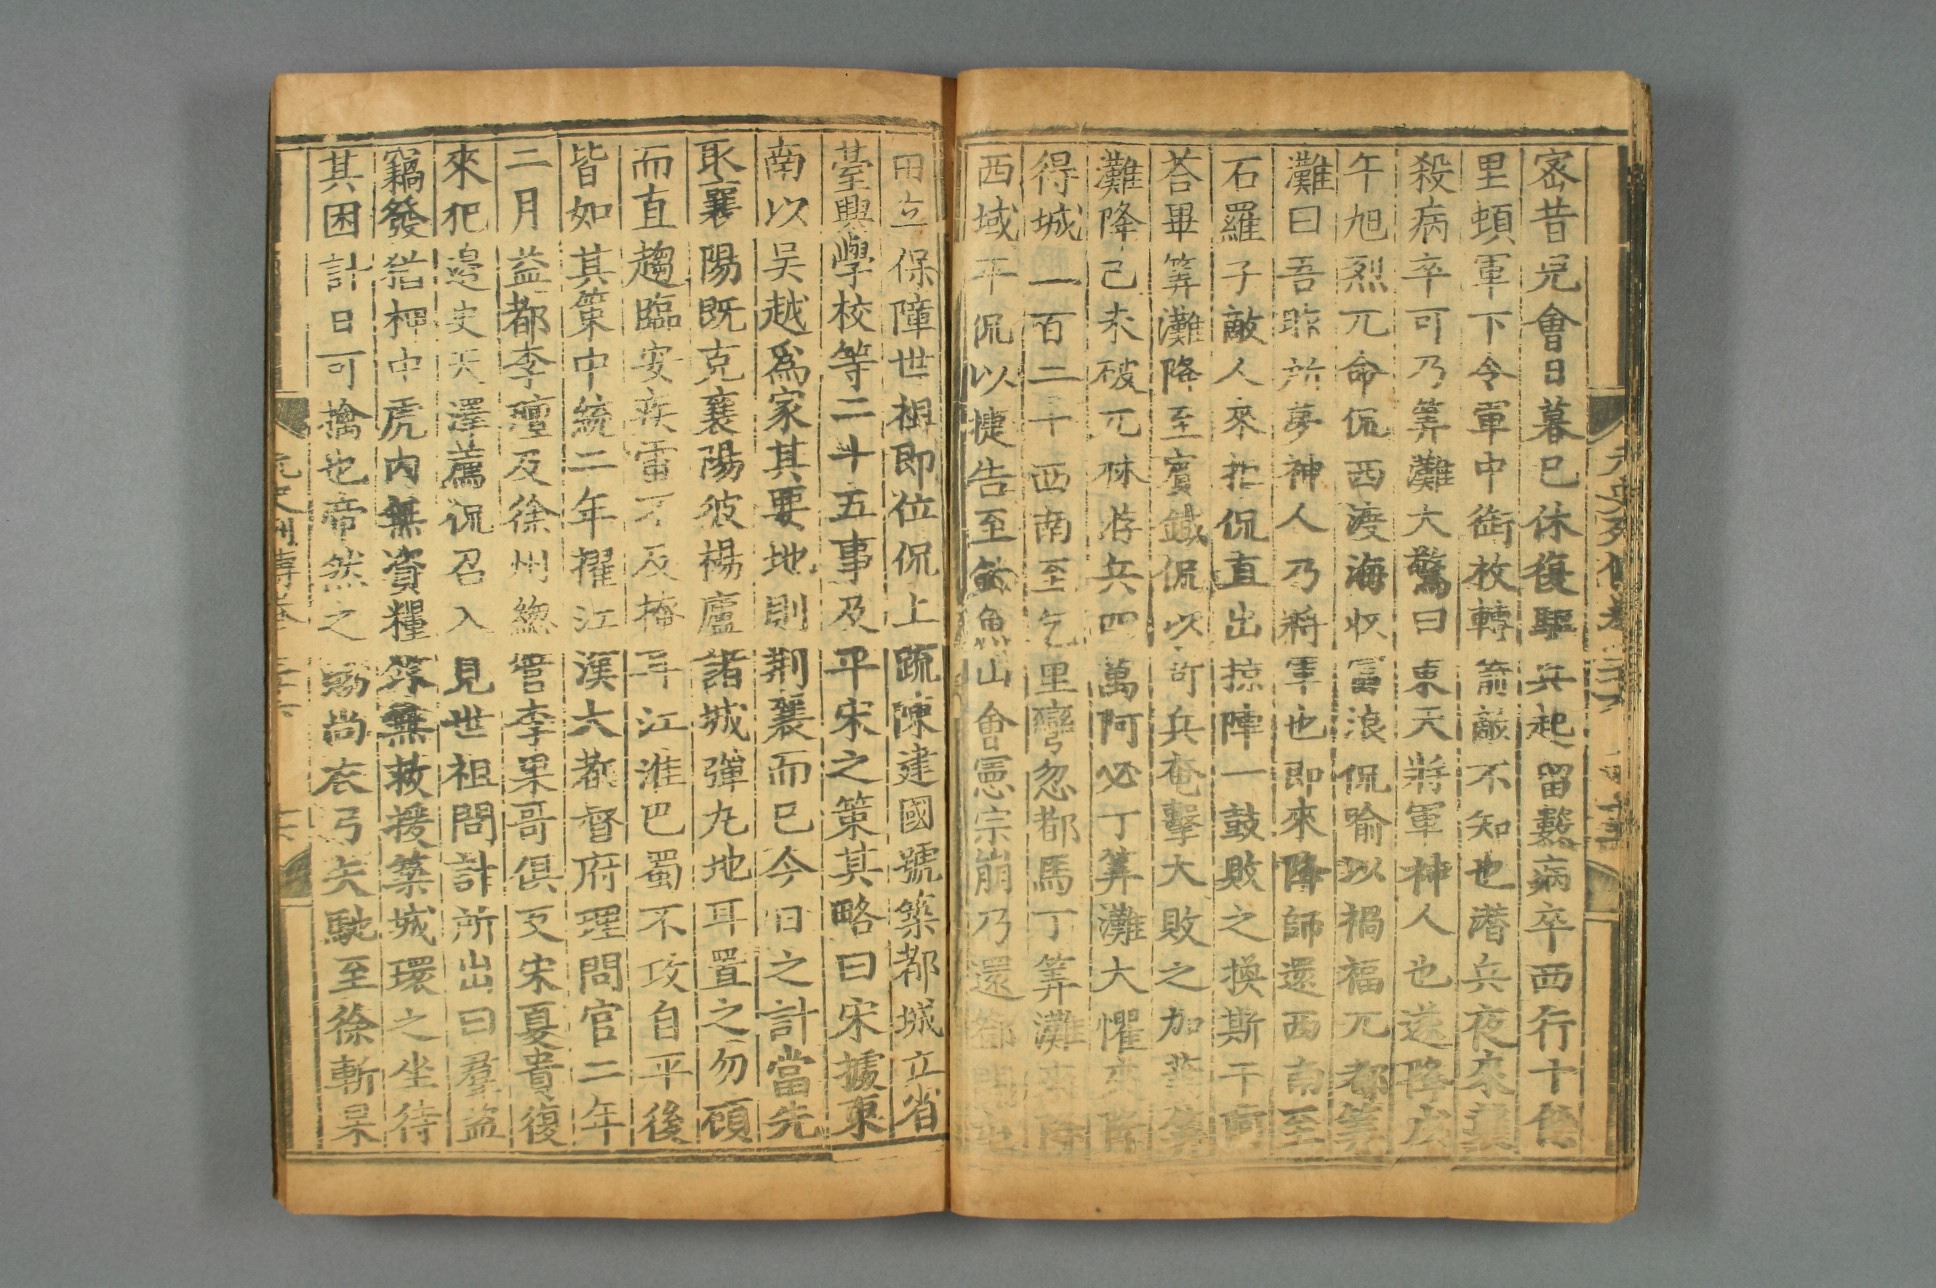 元史列傳卷三十六
宻昔兒會日暮已休復驅兵起留數病卒西行十餘
里頓軍下令軍中銜枚轉箭敵不知也潛兵夜來襲
殺病卒可乃筭灘大驚曰東天將軍神人也遂降戊
午旭烈兀命侃西渡海收富浪侃喻以禍福兀都筭
灘曰吾昨所夢神人乃將軍也即來降師還西南至
石羅子敵人來拒侃直出掠陣一鼓敗之換斯干阿
荅畢筭灘降至賔鐵侃以奇兵奄擊大敗之加葉筭
灘降己未破兀林游兵四萬阿必丁筭灘大懼來降
得城一百二十西南至乞里彎忽都馬丁筭灘來降
西域平侃以捷告至釣魚山會憲宗崩乃還鄧開屯
田立保障世祖即位侃上䟽陳建國號築都城立省
臺興學校等二十五事及平宋之策其略曰宋據東
南以吳越爲家其要地則荆襄而已今日之計當先
取襄陽既克襄陽彼楊廬諸城彈丸地耳置之勿顧
而直趨臨安疾雷不及掩耳江淮巴蜀不攻自平後
皆如其策中統二年擢江漢大都督府理問官二年
二月益都李璮及徐州緫管李杲哥俱反宋夏貴復
來犯邉史天澤薦侃召入見世祖問計所出曰羣盜
竊發猶柙中虎内無資糧外無救援築城環之坐待
其困計日可擒也帝然之賜尚衣弓矢馳至徐斬杲
元史列傳卷三十六 十六